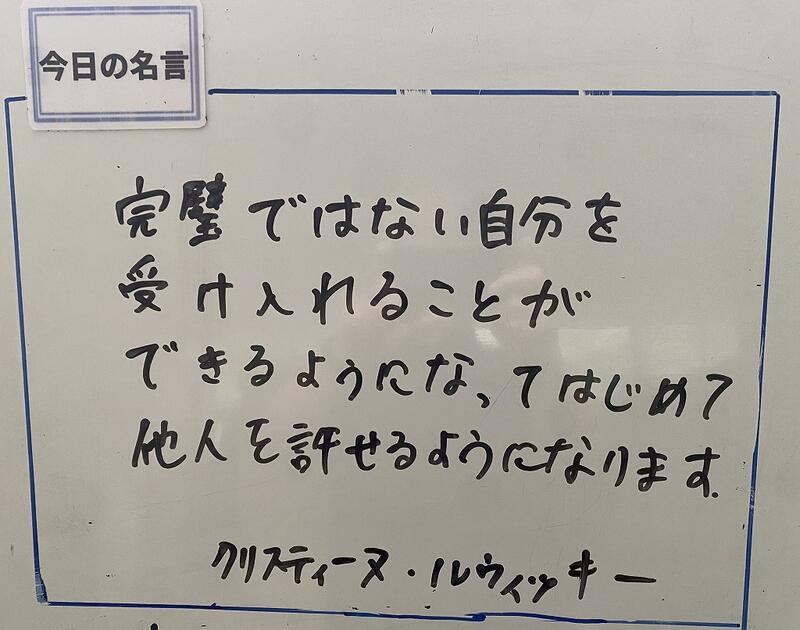 今日の名言
完璧ではない自分を
受け入れることが
できるようになってはじめて
他人を許せるようになります.
クリスティーヌ・ルウィッキー